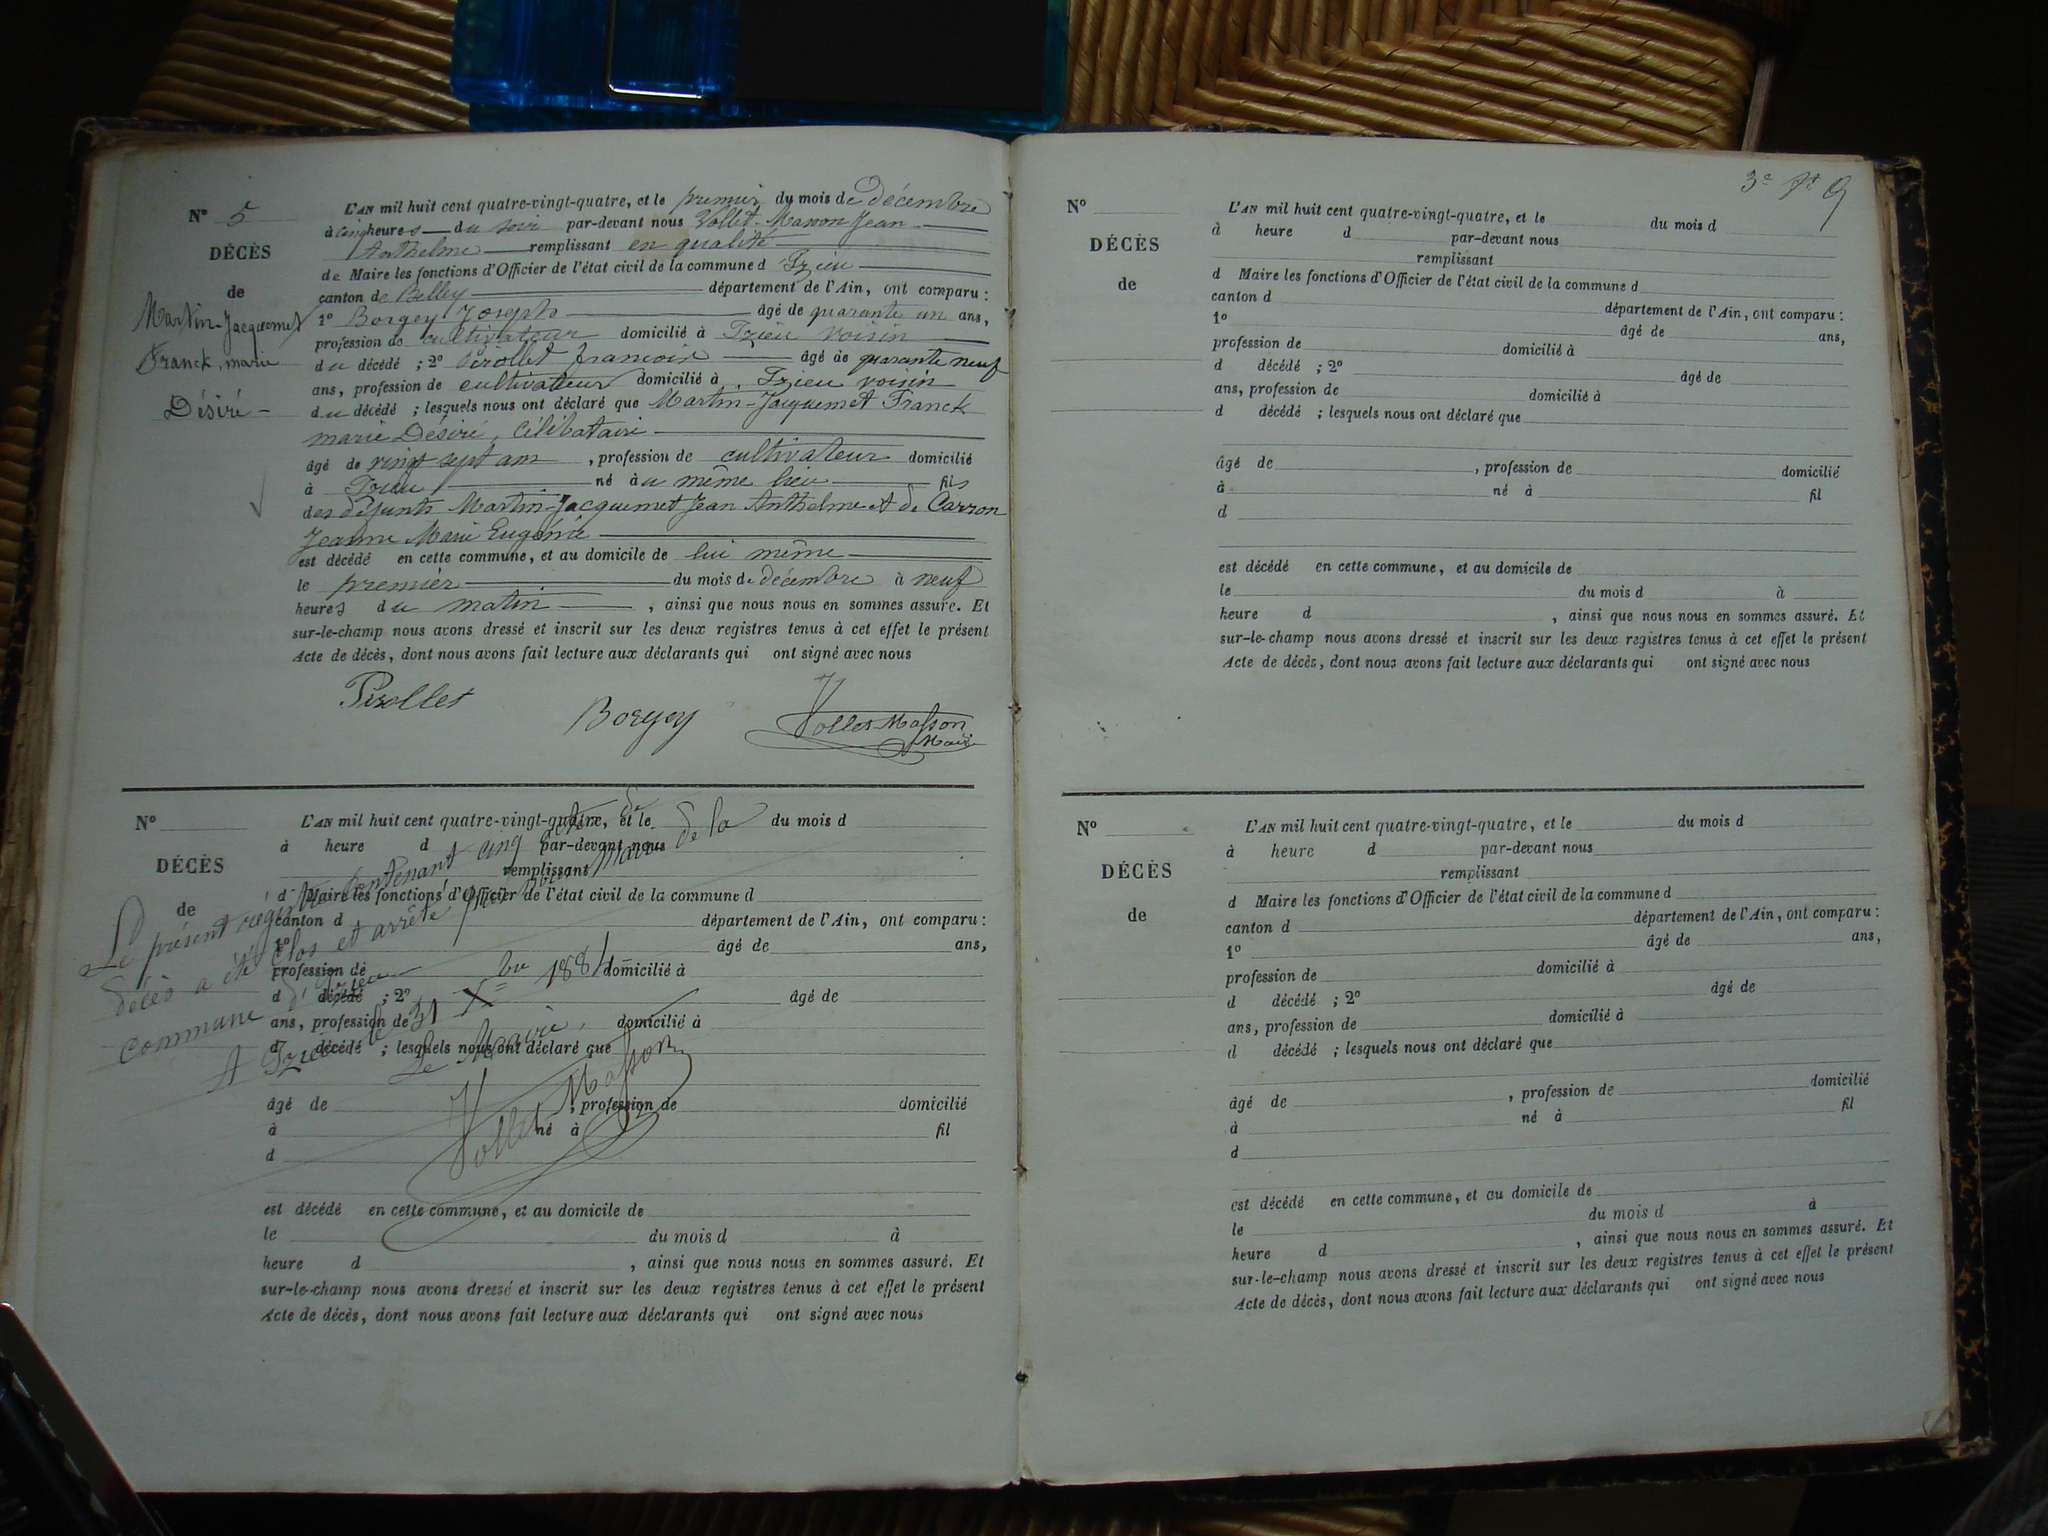 N° 5
DÉCÈS
de
Martin-Jacquemet
Franck, marie
Désiré -
L'AN mil huit cent quatre-vingt-quatre, et le premier du mois de décembre
à cinq heures du soir par-devant nous Vollet-Masson Jean
Anthelme remplissant en qualité
de Maire les fonctions d'Officier de l'état civil de la commune d Izieu
canton de Belley département de l'Ain, ont comparu :
1° Borgey Joseph âgé de quarante un ans,
profession de cultivateur domicilié à Izieu voisin
du décédé ; 2° Pérollet francois âgé de quarante neuf
ans, profession de cultivateur domicilié à Izieu voisin
du décédé ; lesquels nous ont déclaré que Martin-Jacquemet Franck
marie Désiré, célibataire
âgé de vingt sept ans, profession de cultivateur domicilié
à Izieu né au même lieu fils
des défunts Martin-Jacquemet Jean Anthelme et de Carron
Jeanne Marie Eugénie
est décédé en cette commune, et au domicile de lui même
le premier du mois de décembre à neuf
heures du matin, ainsi que nous nous en sommes assuré. Et
sur-le-champ nous avons dressé et inscrit sur les deux registres tenus à cet effet le présent
Acte de décès, dont nous avons fait lecture aux déclarants qui ont signé avec nous
Pirollet
Borgey
Vollet Masson
Maire
N°
DÉCÈS
de
L'AN mil huit cent quatre-vingt-quatre, et le du mois d
à heure d par-devant nous
remplissant
d Maire les fonctions d'Officier de l'état civil de la commune d
canton d département de l'Ain, ont comparu :
1° âgé de ans,
profession de domicilié à
d décédé ; 2° âgé de
ans, profession de domicilié à
d décédé ; lesquels nous ont déclaré que
âgé de , profession de domicilié
à né à fil
d
est décédé en cette commune, et au domicile de
le du mois d à
heure d , ainsi que nous nous en sommes assuré. Et
sur-le-champ nous avons dressé et inscrit sur les deux registres tenus à cet effet le présent
Acte de décès, dont nous avons fait lecture aux déclarants qui ont signé avec nous
Le présent registre contenant cinq actes de
décès a été clos et arrêté par nous Maire de la
commune d'Izieu
A Izieu le 31 Xbre 1884
Le Maire,
Vollet Masson
3e 9
N°
DÉCÈS
de
L'AN mil huit cent quatre-vingt-quatre, et le du mois d
à heure d par-devant nous
remplissant
d Maire les fonctions d'Officier de l'état civil de la commune d
canton d département de l'Ain, ont comparu :
1° âgé de ans,
profession de domicilié à
d décédé ; 2° âgé de
ans, profession de domicilié à
d décédé ; lesquels nous ont déclaré que
âgé de , profession de domicilié
à né à fil
d
est décédé en cette commune, et au domicile de
le du mois d à
heure d , ainsi que nous nous en sommes assuré. Et
sur-le-champ nous avons dressé et inscrit sur les deux registres tenus à cet effet le présent
Acte de décès, dont nous avons fait lecture aux déclarants qui ont signé avec nous
N°
DÉCÈS
de
L'AN mil huit cent quatre-vingt-quatre, et le du mois d
à heure d par-devant nous
remplissant
d Maire les fonctions d'Officier de l'état civil de la commune d
canton d département de l'Ain, ont comparu :
1° âgé de ans,
profession de domicilié à
d décédé ; 2° âgé de
ans, profession de domicilié à
d décédé ; lesquels nous ont déclaré que
âgé de , profession de domicilié
à né à fil
d
est décédé en cette commune, et au domicile de
le du mois d à
heure d , ainsi que nous nous en sommes assuré. Et
sur-le-champ nous avons dressé et inscrit sur les deux registres tenus à cet effet le présent
Acte de décès, dont nous avons fait lecture aux déclarants qui ont signé avec nous